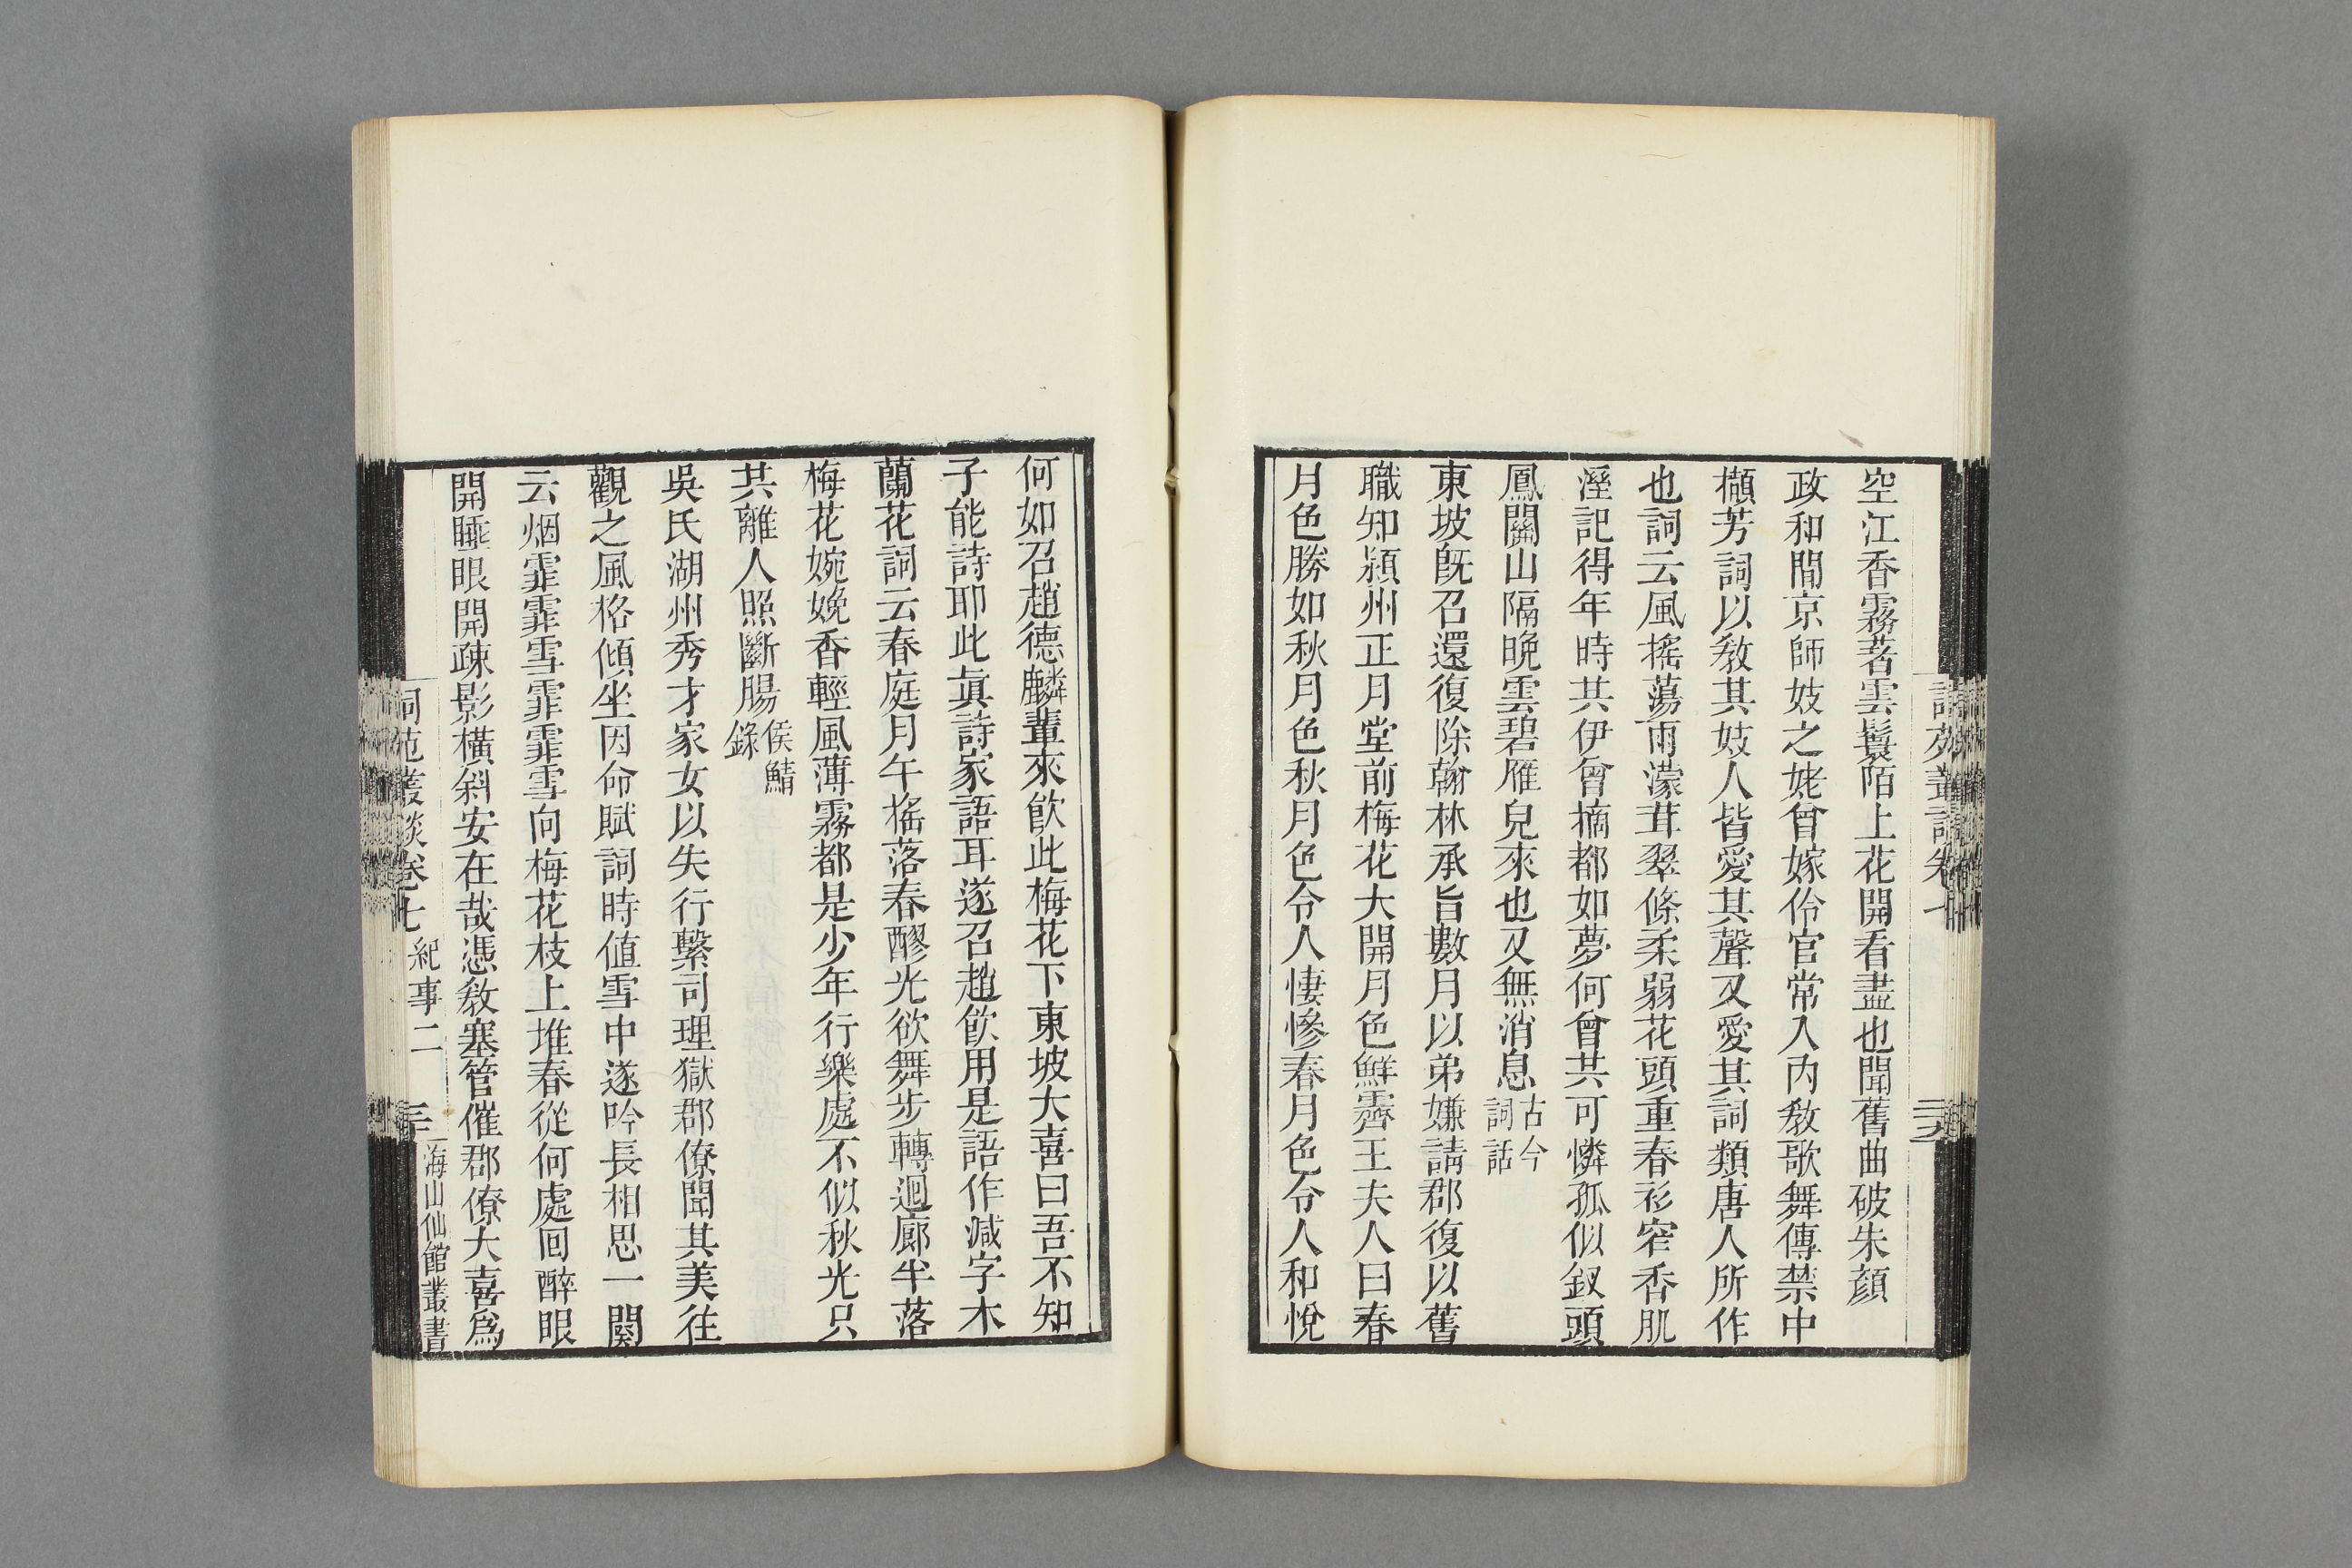 空江香霧著雲鬟陌上花開看盡也聞舊曲破朱顏
政和間京師妓之姥曾嫁伶官常入內敎歌舞傳禁中
擷芳詞以敎其妓人皆愛其聲又愛其詞類唐人所作
也詞云風搖蕩雨濛茸翠條柔弱花頭重春衫窄香肌
溼記得年時共伊曾摘都如夢何曾共可憐孤似釵頭
鳳關山隔晚雲碧雁兒來也又無消息古今
詞話
東坡旣召還復除翰林承旨數月以弟嫌請郡復以舊
職知潁州正月堂前梅花大開月色鮮霽王夫人曰春
月色勝如秋月色秋月色令人悽慘春月色令人和悅
何如召趙德麟輩來飮此梅花下東坡大喜曰吾不知
子能詩耶此眞詩家語耳遂召趙飮用是語作減字木
蘭花詞云春庭月午搖落春醪光欲舞步轉迴廊半落
梅花婉娩香輕風薄霧都是少年行樂處不似秋光只
共離人照斷腸侯鯖
錄
吳氏湖州秀才家女以失行繫司理獄郡僚聞其美往
觀之風格傾坐因命賦詞時値雪中遂吟長相思一闋
云烟霏霏雪霏霏雪向梅花枝上堆春從何處回醉眼
開睡眼開疎影橫斜安在哉憑敎塞管催郡僚大喜爲
詞苑叢談卷七 紀事二
海山仙館叢書